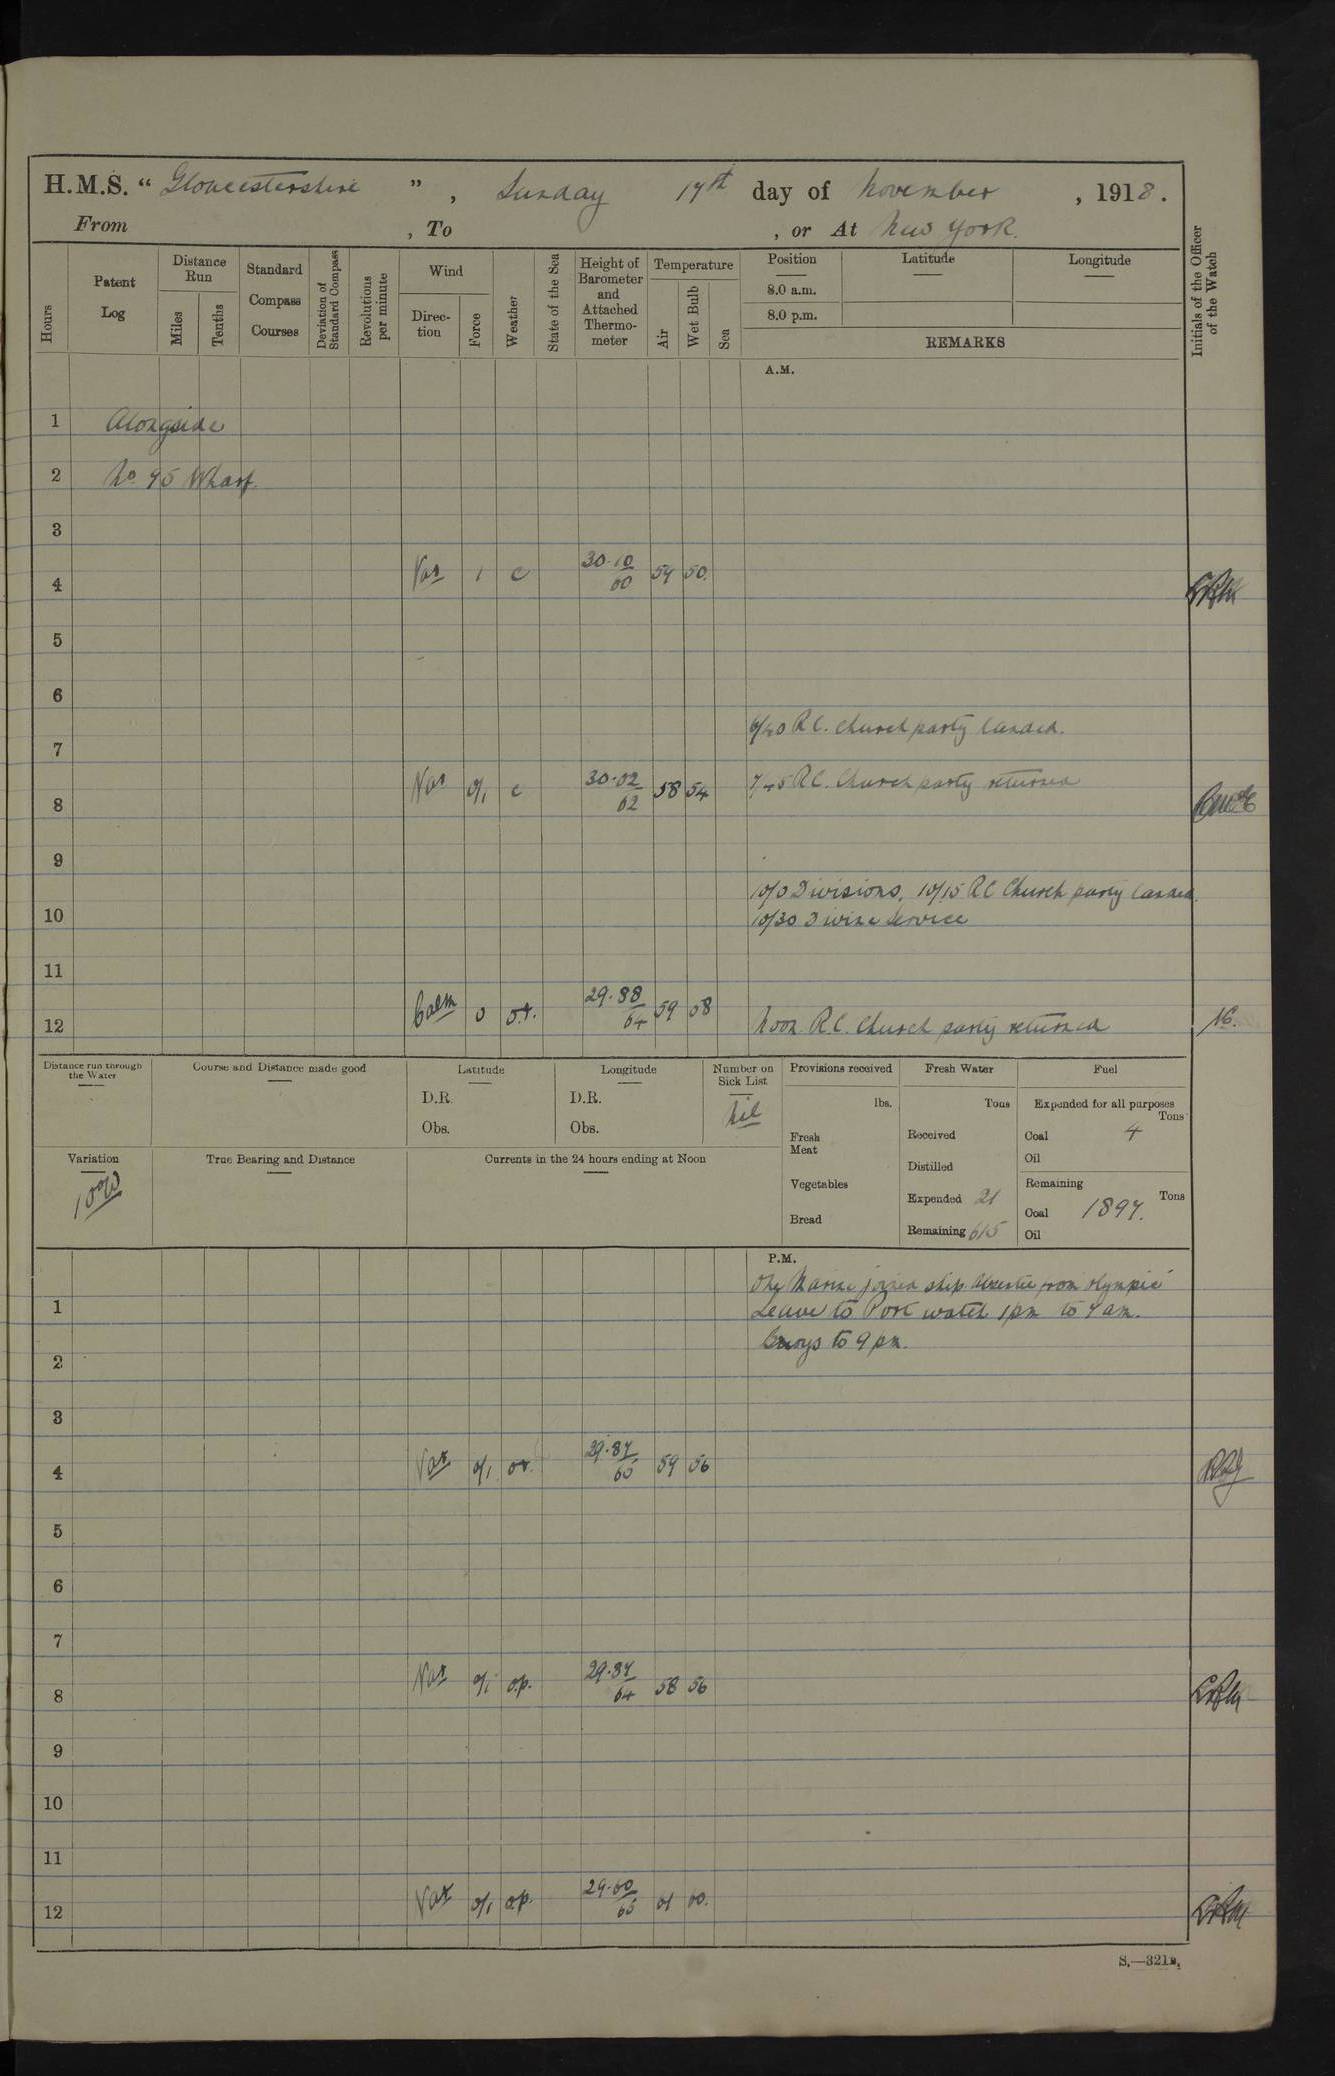 H.M.S. “ Gloucestershire ” , Sunday 17th day of November , 1918.
From , To , or At New York.
Hours
Patent Log
Distance Run
Miles
Tenths
Standard Compass Courses
Deviation of Standard Compass
Revolutions per minute
Wind
Direc-tion
Force
Weather
State of the Sea
Height of Barometer and Attached Thermo-meter
Temperature
Air
Wet Bulb
Sea
Position Latitude Longitude
8.0 a.m.
8.0 p.m.
REMARKS
Initials of the Officer of the Watch
A.M.
1 Alongside
2 No 95 Wharf.
3
4 Var 1 c 30.10/60 54 50.
5
6
6/40 R.C. Church party landed.
7
7/45 R.C. Church party returned
8 Var 0/1 c 30.02/62 58 54
9
10/0 Divisions. 10/15 RC Church party landed.
10 10/30 Divine Service
11
12 Calm 0 o.r. 29.88/64 59 58 Noon R.C. Church party returned
Distance run through the Water
Course and Distance made good
Latitude
D.R.
Obs.
Longitude
D.R.
Obs.
Number on Sick List
Nil
Provisions received
lbs.
Fresh Meat
Vegetables
Bread
Fresh Water
Tons
Received
Distilled
Expended 21
Remaining 615
Fuel
Expended for all purposes
Tons
Coal 4
Oil
Remaining
Tons
Coal 1897.
Oil
Variation
10°W
True Bearing and Distance
Currents in the 24 hours ending at Noon
P.M.
One Marine joined ship absentee from Olympic
1 Leave to Port watch 1pm to 7am.
Boys to 9 pm.
2
3
4 Var 0/1 or. 29.87/65 59 56
5
6
7
8 Var 0/1 o.p. 29.87/64 58 56
9
10
11
12 Var 0/1 o.p. 61 60.
S.—321B.